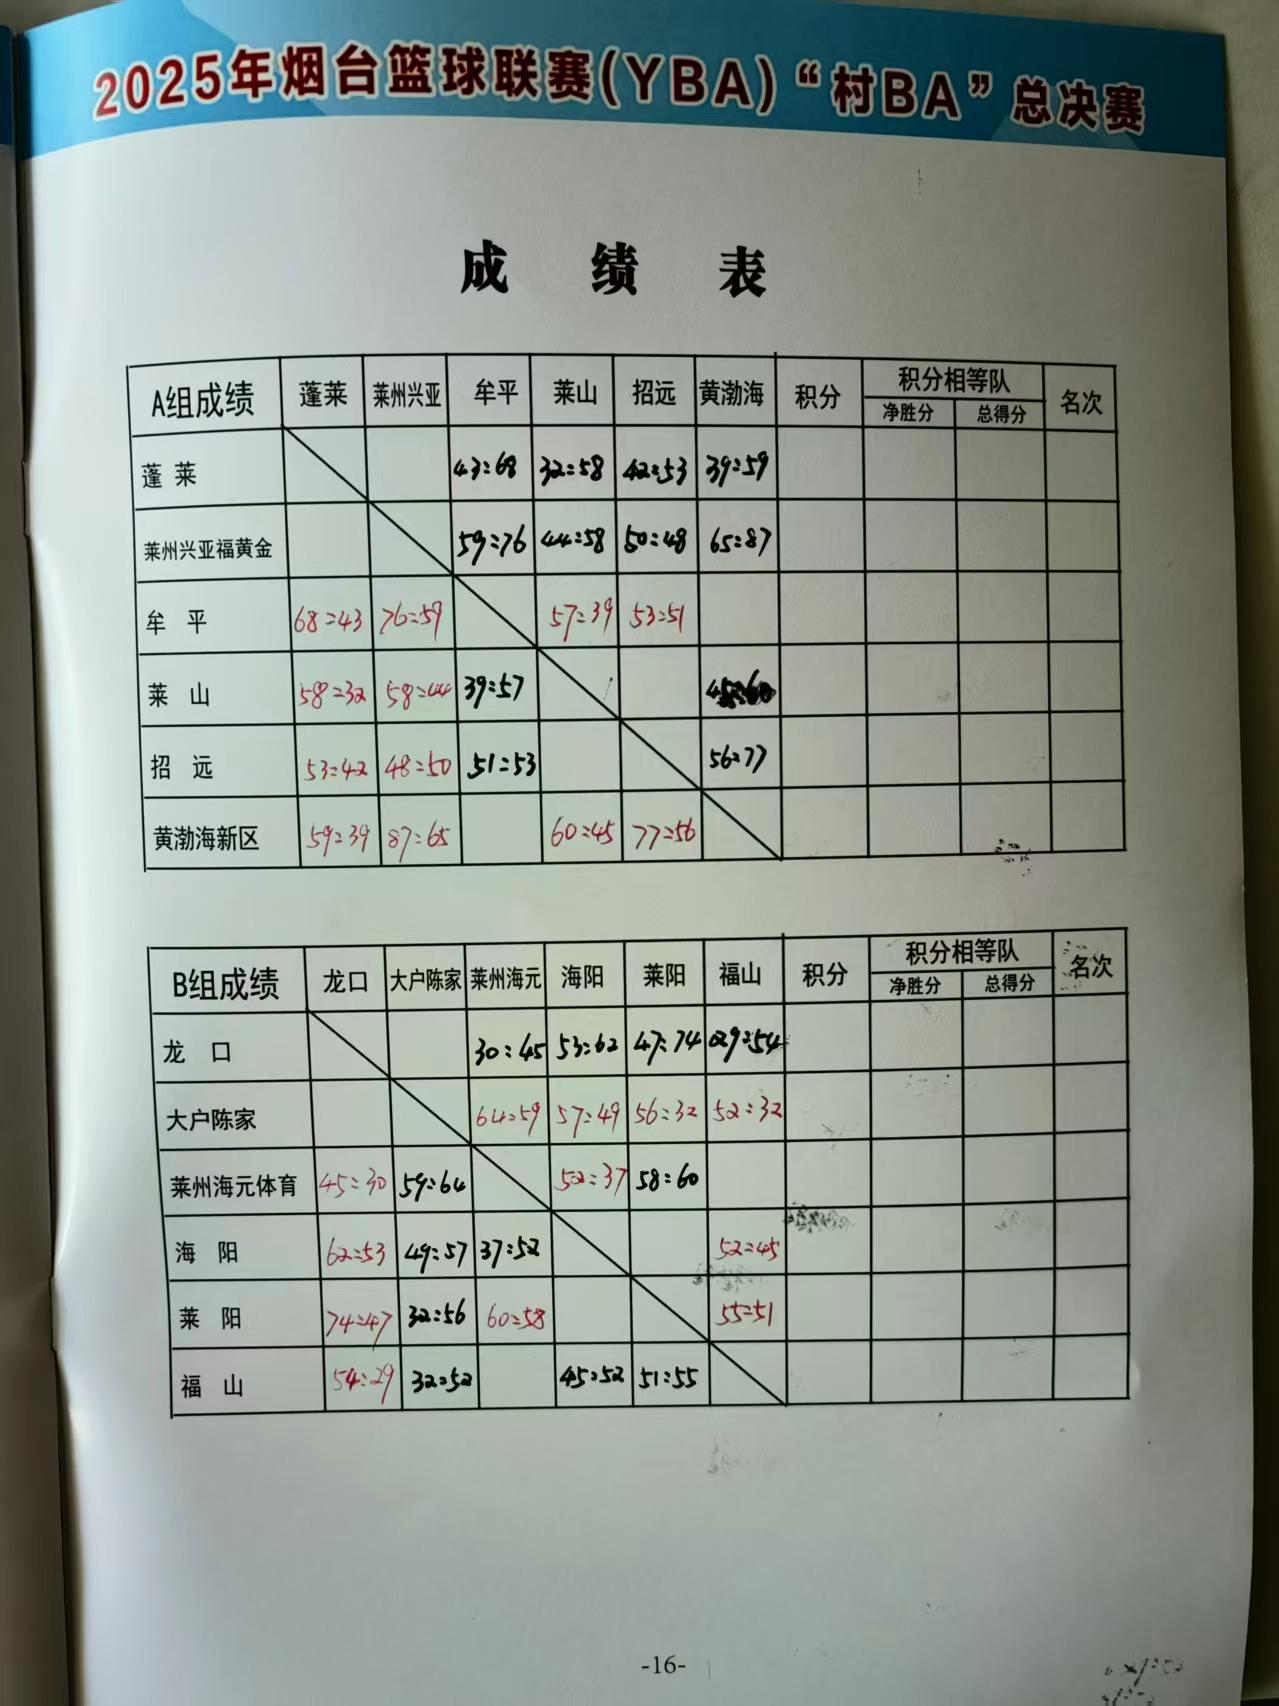 2025年烟台篮球联赛(YBA)“村BA”总决赛
成 绩 表
A组成绩 蓬莱 莱州兴亚 牟平 莱山 招远 黄渤海 积分 积分相等队 名次
净胜分 总得分
蓬 莱 43:68 32:58 42:53 39:59
莱州兴亚福黄金 59:76 44:58 50:48 65:87
牟 平 68:43 76:59 57:39 53:51
莱 山 58:32 58:44 39:57 45:60
招 远 53:42 48:50 51:53 56:77
黄渤海新区 59:39 87:65 60:45 77:56
B组成绩 龙口 大户陈家 莱州海元 海阳 莱阳 福山 积分 积分相等队 名次
净胜分 总得分
龙 口 30:45 53:62 47:74 29:54
大户陈家 64:59 57:49 56:32 52:32
莱州海元体育 45:30 59:64 52:37 58:60
海 阳 62:53 49:57 37:52 52:45
莱 阳 74:47 32:56 60:58 55:51
福 山 54:29 32:52 45:52 51:55
-16-